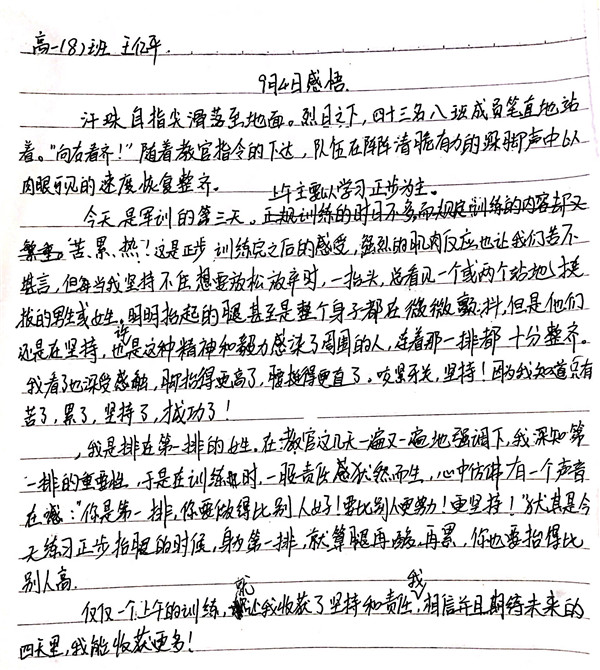 高一(8)班 王亿平.
9月4日感悟.
汗珠自指尖滑落至地面。烈日之下，四十三名八班成员笔直地站
着。“向右看齐！”随着教官指令的下达，队伍在阵阵清脆有力的跺脚声中以
肉眼可见的速度恢复整齐。
上午主要以学习正步为主。
今天是军训的第三天。正规训练的时日不多而规定训练的内容却又
繁重。苦、累、热！这是正步训练完之后的感受，强烈的肌肉反应也让我们苦不
堪言，但每当我坚持不住想要放松放弃时，一抬头，总看见一个或两个站地挺
拔的男生或女生。明明抬起的腿甚至是整个身子都在微微颤抖，但是他们
还是在坚持，许也是这种精神和毅力感染了周围的人，连着那一排都十分整齐。
我看了也深受感触，脚抬得更高了，腰挺得更直了。咬紧牙关，坚持！因为我知道只有
苦了，累了，坚持了，成功了！
，我是排在第一排的女生，在教官这几天一遍又一遍地强调下，我深知第
一排的重要性，于是在训练时，一股责任感犹然而生，心中仿佛有一个声音
在喊：“你是第一排，你要做得比别人好！要比别人更努力！更坚持！”尤其是今
天练习正步抬腿的时候，身为第一排，就算腿再酸、再累，你也要抬得比
别人高.
仅仅一个上午的训练，就让我收获了坚持和责任，我相信并且期待未来的
四天里，我能收获更多！